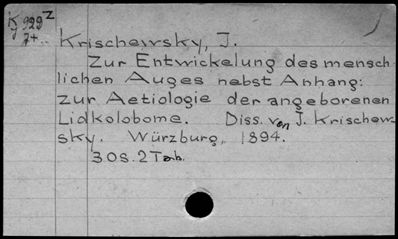 K 929 Z
7+..
Krischewsky, J.
Zur Entwickelung des mensch
lichen Auges nebst Anhang:
zur Aetiologie der angeborenen
Lidkolobome. Diss. von J. Krischew
sky. Würzburg, 1894.
30S. 2 Tab.